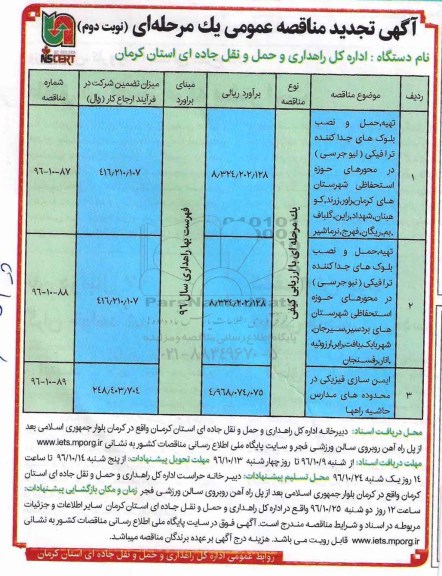 آگهی تجدید مناقصه عمومی یك مرحله‌ای (نوبت دوم)
نام دستگاه : اداره کل راهداری و حمل و نقل جاده ای استان کرمان
NSCERT
ردیف
موضوع مناقصه
نوع مناقصه
برآورد ریالی
مبنای برآورد
میزان تضمین شرکت در فرآیند ارجاع کار (ریال)
شماره مناقصه
۱
تهیه,حمل و نصب
بلوک های جدا کننده
ترافیکی ( نیوجرسی )
در محورهای حوزه
استحفاظی شهرستان
های کرمان,راور,زرند,کو
هبنان,شهداد,راین,گلباف
,بم,ریگان,فهرج,نرماشیر
۸/۳۲۴/۲۰۲/۱۲۸
۴۱۶/۲۱۰/۱۰۷
۹۶-۱۰-۸۷
یك مرحله ای با ارزیابی کیفی
فهرست بها راهداری سال ۹۶
۲
تهیه,حمل و نصب
بلوک های جدا کننده
ترافیکی ( نیوجرسی )
در محورهای حوزه
استحفاظی شهرستان
های بردسیر,سیرجان,
شهربابک,بافت,رابر,ارزوئیه
,انار,رفسنجان
۸/۳۲۴/۲۰۲/۱۲۸
۴۱۶/۲۱۰/۱۰۷
۹۶-۱۰-۸۸
۳
ایمن سازی فیزیکی در
محدوده های مدارس
حاشیه راهها
۴/۹۶۸/۰۷۴/۰۷۵
۲۴۸/۴۰۳/۷۰۴
۹۶-۱۰-۸۹
پایگاه ملی اطلاع رسانی مناقصه و مزایده
۰۲۱-۸۸۳۴۹۶۷۰-۵
محل دریافت اسناد: دبیرخانه اداره کل راهداری و حمل و نقل جاده ای استان کرمان واقع در کرمان بلوار جمهوری اسلامی بعد
از پل راه آهن روبروی سالن ورزشی فجر و سایت پایگاه ملی اطلاع رسانی مناقصات کشور به نشانی www.iets.mporg.ir
مهلت دریافت اسناد: از شنبه ۹۶/۱۰/۹ تا روز چهارشنبه ۹۶/۱۰/۱۳ مهلت تحویل پیشنهادات: از پنج شنبه ۹۶/۱۰/۱۴ تا ساعت
۱۴ روز یک شنبه ۹۶/۱۰/۲۴ محل تسلیم پیشنهادات: دبیر خانه حراست اداره کل راهداری و حمل و نقل جاده ای استان
کرمان واقع در کرمان بلوار جمهوری اسلامی بعد از پل راه آهن روبروی سالن ورزشی فجر زمان و مکان بازگشایی پیشنهادات:
ساعت ۱۲ روز دو شنبه ۹۶/۱۰/۲۵ واقع در اداره کل راهداری و حمل و نقل جاده ای استان کرمان سایر اطلاعات و جزئیات
مربوطه در اسناد و شرایط مناقصه مندرج است. آگهی فوق در سایت پایگاه ملی اطلاع رسانی مناقصات کشور به نشانی
www.iets.mporg.ir قابل رویت می باشد. هزینه درج آگهی بر عهده برندگان مناقصه میباشد.
روابط عمومی اداره کل راهداری و حمل و نقل جاده ای استان کرمان